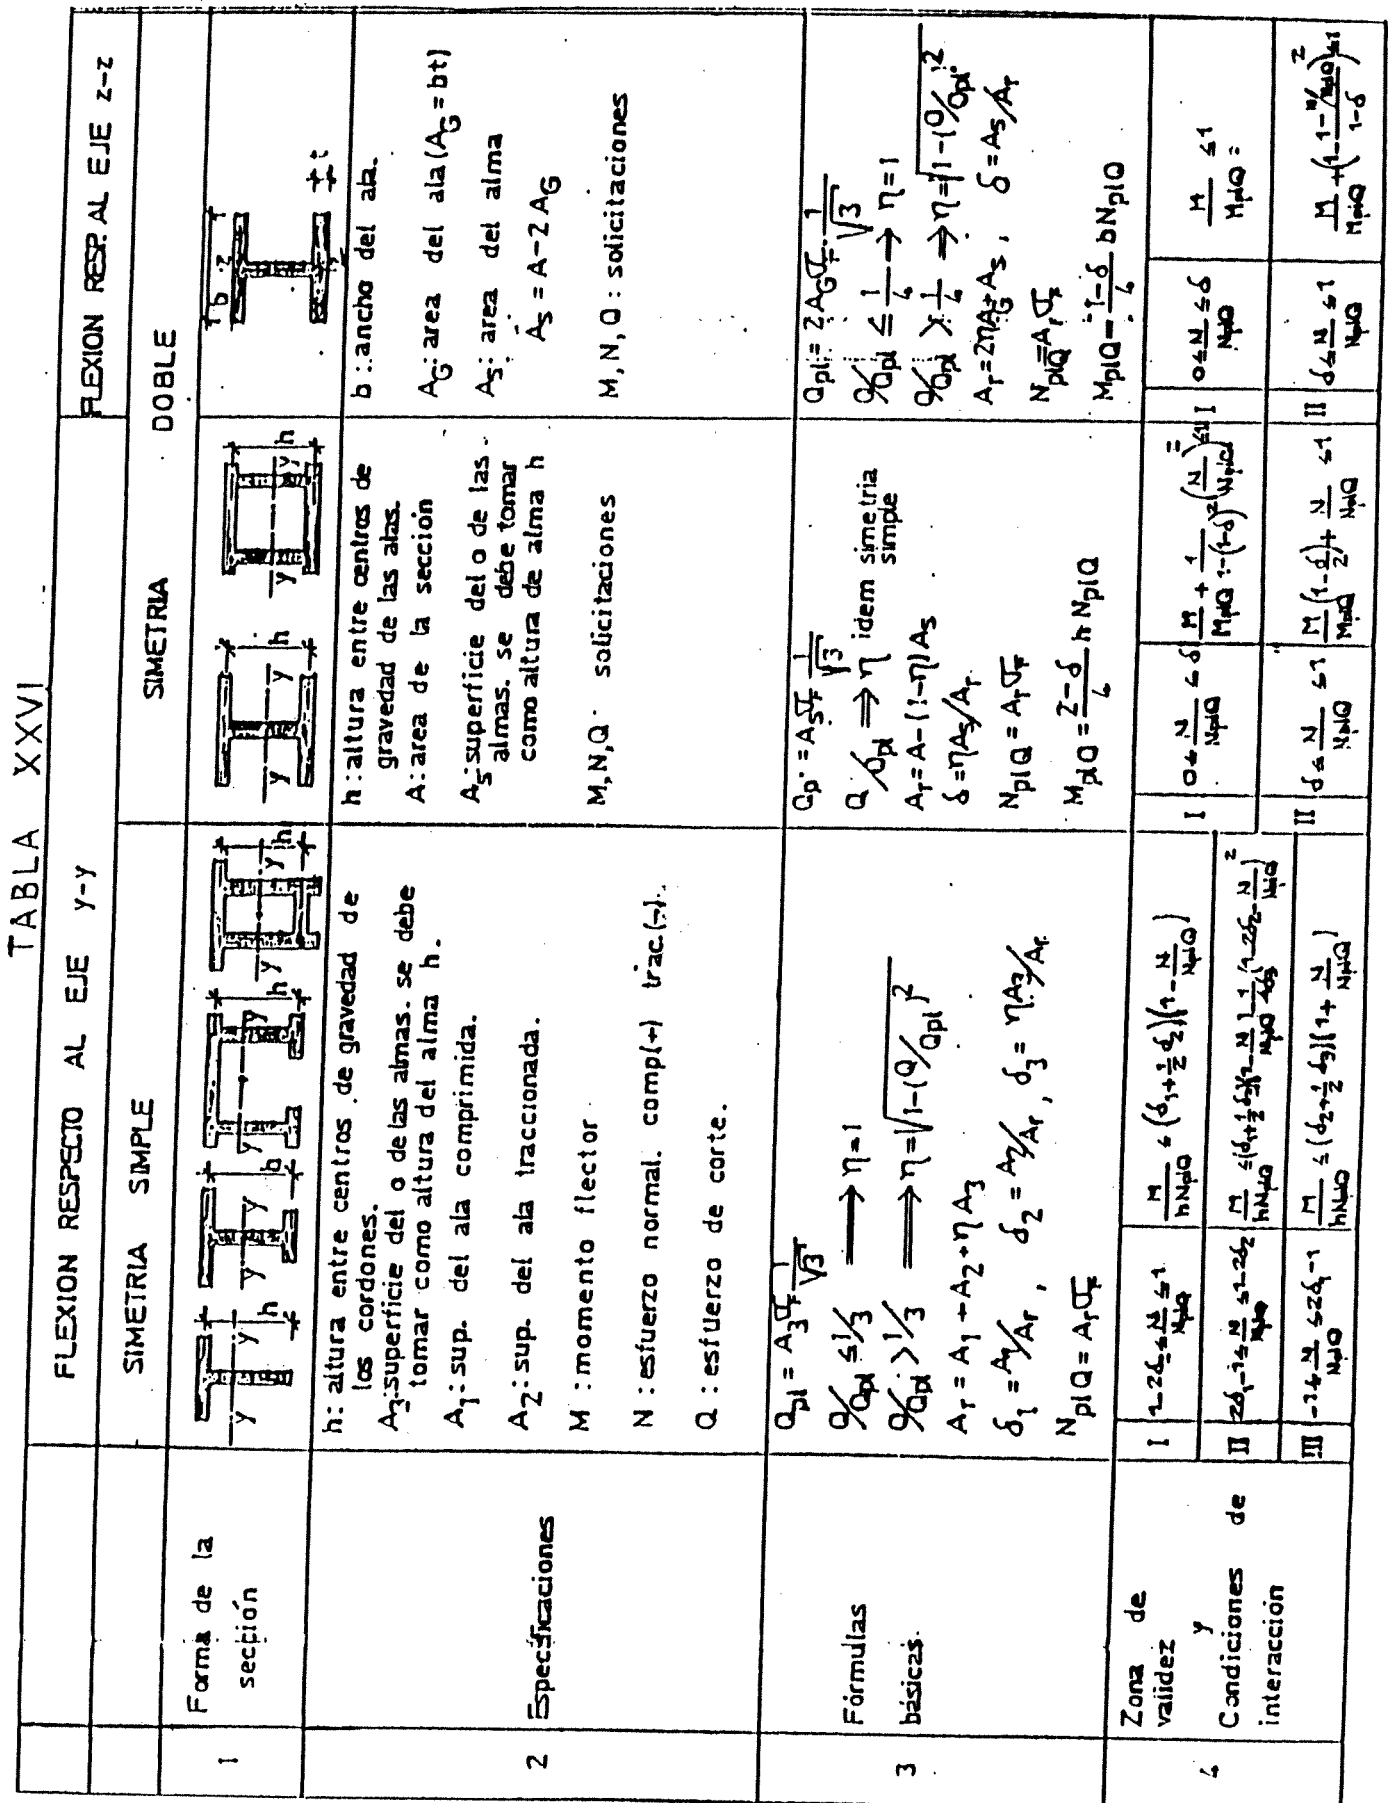 TABLA XXVI
FLEXION RESPECTO AL EJE y-y
FLEXION RESP. AL EJE z-z
SIMETRIA SIMPLE
SIMETRIA DOBLE
1
Forma de la
sección
y y h
y y h
y y h
y y h
y y h
y y h
b z t
2
Especificaciones
h: altura entre centros de gravedad de
los cordones.
A₃: superficie del o de las almas. se debe
tomar como altura del alma h.
A₁: sup. del ala comprimida.
A₂: sup. del ala traccionada.
M : momento flector
N : esfuerzo normal. comp(+) trac.(-).
Q : esfuerzo de corte.
h: altura entre centros de
gravedad de las alas.
A: area de la sección
A_S: superficie del o de las
almas. se debe tomar
como altura de alma h
M, N, Q solicitaciones
b : ancho del ala.
A_G: area del ala (A_G = bt)
A_S: area del alma
A_S = A-2 A_G
M, N, Q : solicitaciones
3
Fórmulas
básicas.
Q_pl = A₃ σ_F 1/√3
Q/Q_pl ≤ 1/3 ⟹ η=1
Q/Q_pl > 1/3 ⟹ η=√(1-(Q/Q_pl)²)
A_r = A₁ + A₂ + η A₃
δ₁ = A₁/A_r , δ₂ = A₂/A_r , δ₃ = ηA₃/A_r
N_plQ = A_r σ_F
= A_S σ_F 1/√3
Q/Q_pl ⟹ η idem simetria
simple
A_r = A-(1-η)A_S
δ = ηA_S/A_r
N_plQ = A_r σ_F
M_plQ = (2-δ)/4 h N_plQ
Q_pl = 2 A_G σ_F · 1/√3
Q/Q_pl ≤ 1/4 → η = 1
Q/Q_pl > 1/4 ⟹ η = √(1-(Q/Q_pl)²)
A_r = 2ηA_G + A_S , δ = A_S/A_r
N_plQ = A_r σ_F
M_plQ = (1-δ)/4 b N_plQ
4
Zona de
validez
y
Condiciones de
interacción
I
1-2δ₂ ≤ N/N_plQ ≤ 1
M/(hN_plQ) ≤ (δ₁+½δ₂)(1-N/N_plQ)
II
2δ₁-1 ≤ N/N_plQ ≤ 1-2δ₂
III
-1 ≤ N/N_plQ ≤ 2δ₁-1
M/(hN_plQ) ≤ (δ₂+½δ₃)(1+N/N_plQ)
I
0 ≤ N/N_plQ ≤ δ
II
δ ≤ N/N_plQ ≤ 1
M/M_plQ (1-δ/2) + N/N_plQ ≤ 1
I
0 ≤ N/N_plQ ≤ δ
M/M_plQ ≤ 1
II
δ ≤ N/N_plQ ≤ 1